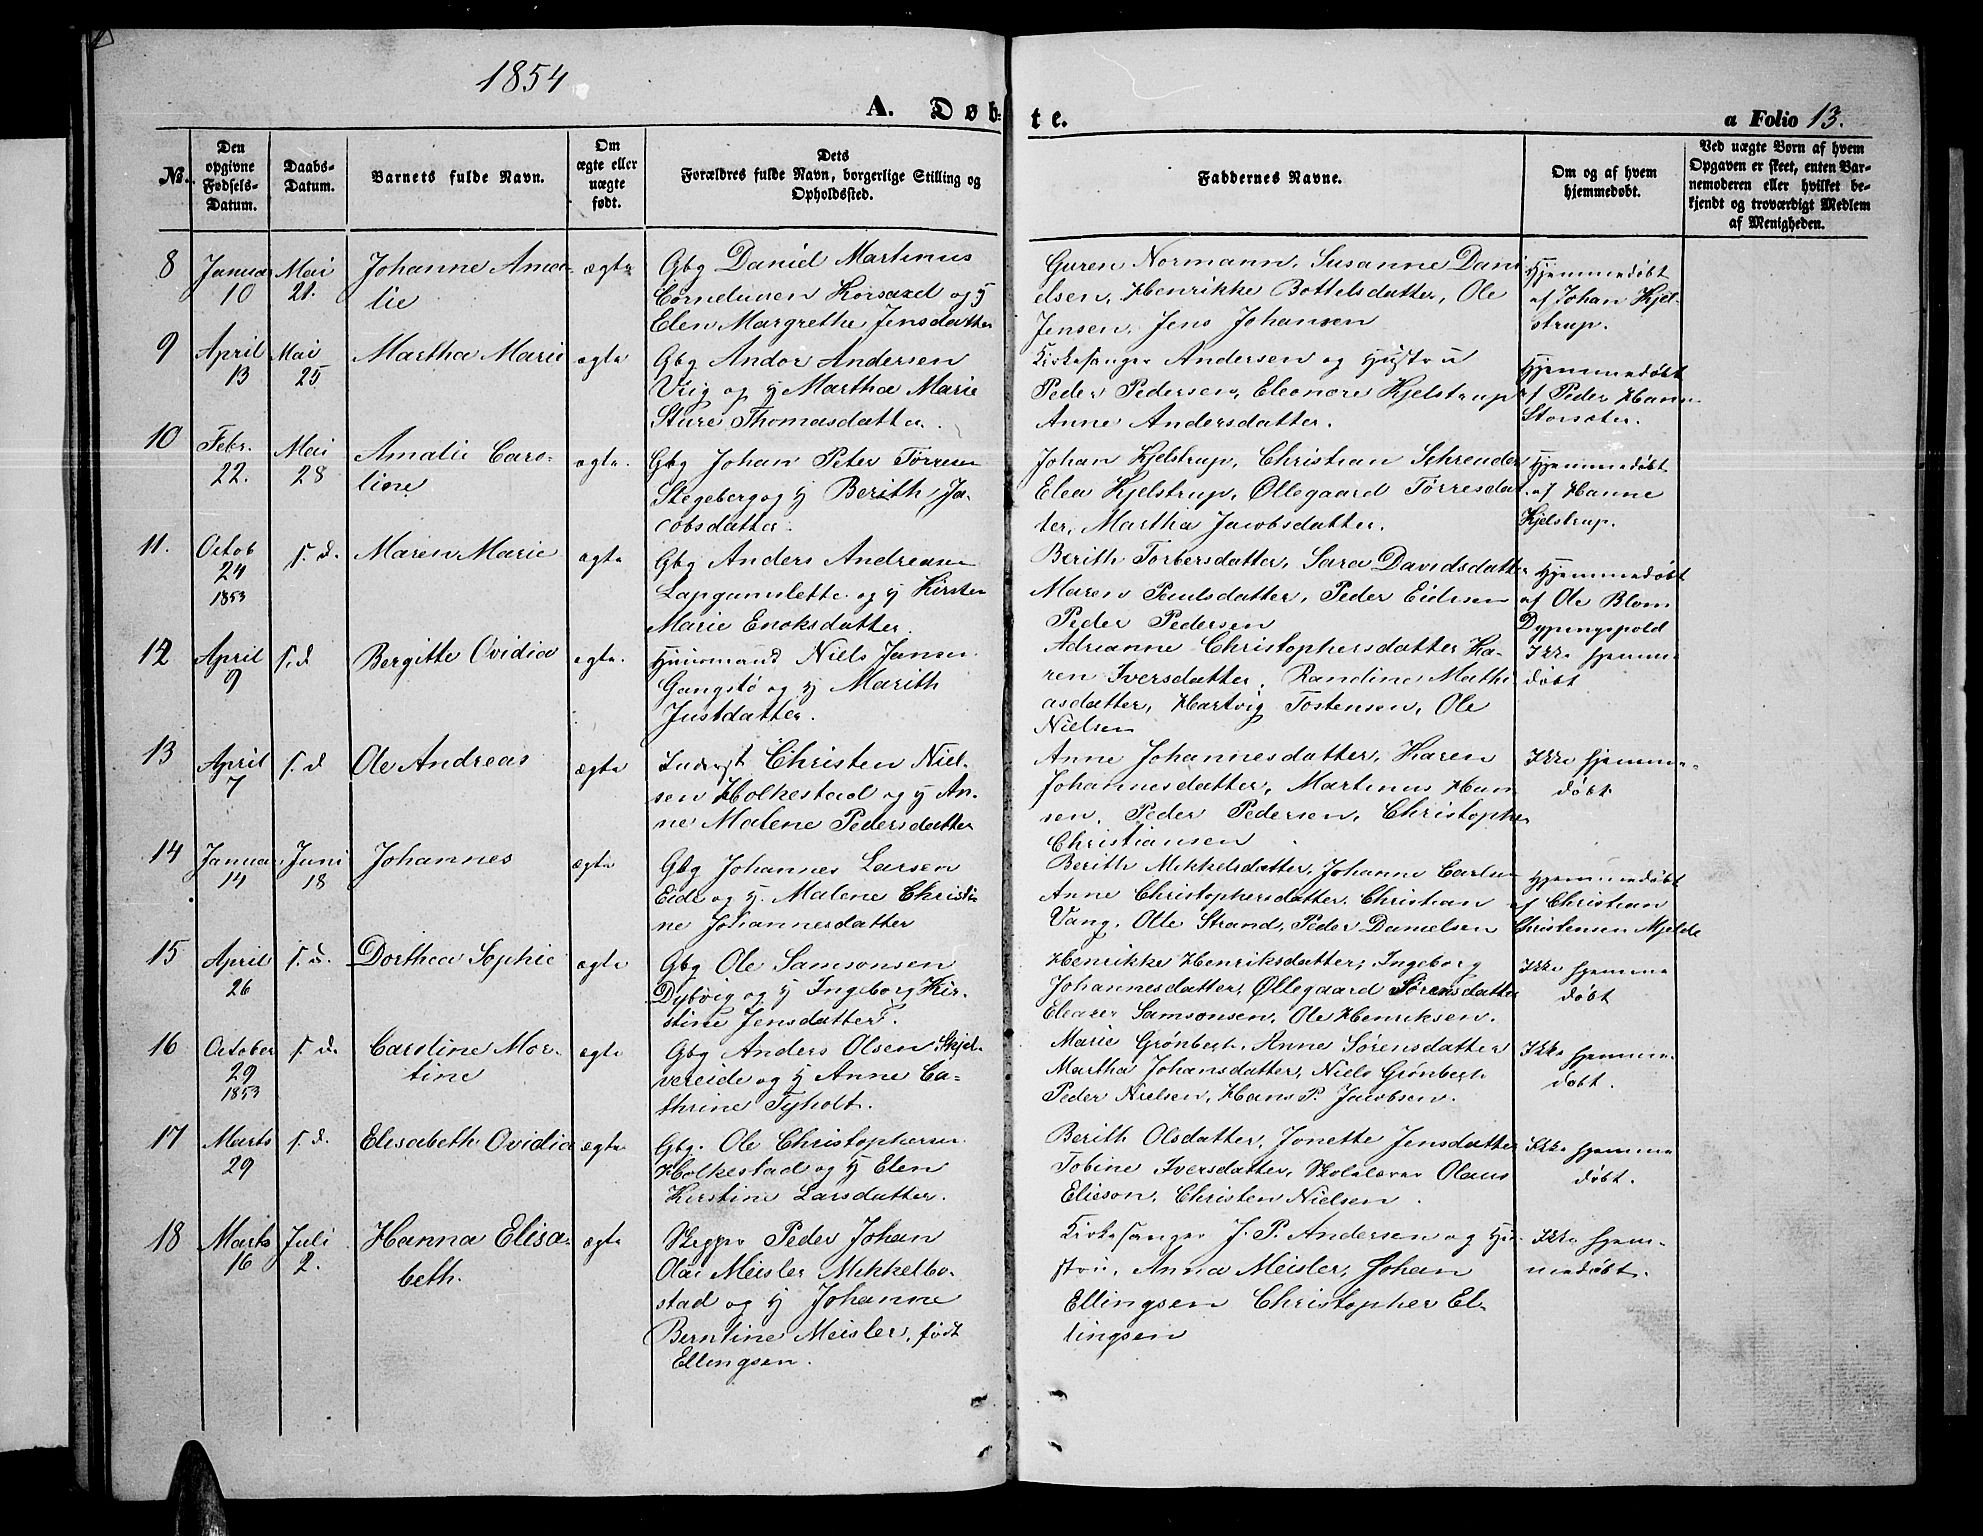 1854
A. Døbte.
a Folio 13.
No.
Den opgivne Fødsels-Datum.
Daabs-Datum.
Barnets fulde Navn.
Om ægte eller uægte født.
Dets Forældres fulde Navn, borgerlige Stilling og Opholdssted.
Faddernes Navne.
Om og af hvem hjemmedøbt.
Ved uægte Børn af hvem Opgaven er skeet, enten Barnemoderen eller hvilket bekjendt og troværdigt Medlem af Menigheden.
8
Januar 10
Mai 21.
Johanne Amalie
ægte
Gbg Daniel Martinus
Corneliusen Korsaxel og H
Elen Margrethe Jensdatter
Guren Normann, Susanne Dani
elsen, Henrikke Bottelsdatter, Ole
Jensen, Jens Johansen
Hjemmedøbt
af Johan Kjel-
strup.
9
April 13
Mai 25
Martha Marie
ægte
Gbg Andor Andersen
Vig og H Martha Marie
Sture Thomasdatter.
Kirkesanger Andersen og Hustru
Peder Pedersen, Eleonore Kjelstrup
Anne Andersdatter.
Hjemmedøbt
af Peder Hans
Storsæter.
10
Febr. 22.
Mai 28
Amalie Caro-
line
ægte.
Gbg Johan Peter Tørresen
Stegeberg og H Berith Ja-
cobsdatter.
Johan Kjelstrup, Christian Schreuder
Elea Kjelstrup, Øllegaard Tørresdat
ter, Martha Jacobsdatter.
Hjemmedøbt
af Hanne
Kjelstrup.
11.
Octob 24 1853
s. d.
Maren Marie
ægte
Gbg Anders Andreasen
Lapgamslette og H Kirsten
Marie Enoksdatter.
Berith Torbersdatter, Sara Davidsdatter
Maren Paulsdatter, Peder Eidesen
Peder Pedersen
Hjemmedøbt
af Ole Blom
Dypingspold
12
April 9
s. d
Bergitte Ovidia
ægte.
Huusmand Niels Jansen
Gangstø og H Marith
Justdatter.
Adrianne Christophersdatter Ka-
ren Iversdatter, Randine Mathi
asdatter, Hartvig Tostensen, Ole
Nielsen
Ikke hjemme
døbt
13
April 7
s. d
Ole Andreas
ægte
Inderst Christen Niel-
sen Holkestad og H An-
ne Malene Pedersdatter
Anne Johannesdatter, Karen
Johannesdatter, Martinus Han
sen, Peder Pedersen, Christopher
Christiansen
Ikke hjemme-
døbt
14
Januar 14
Juni 18
Johannes
ægte
Gbg Johannes Larsen
Eide og H. Malene Christi
ne Johannesdatter
Berith Mikkelsdatter, Johanne Carlsen
Anne Christophersdatter, Christian
Vang, Olle Strand, Peder Danielsen
Hjemmedøbt
af Christian
Christensen Mjelde
15
April 26
s. d.
Dorthea Sophie
ægte
Gbg Ole Samsonsen
Dybvig og H Ingeborg Kir-
stine Jensdatter.
Henrikke Henriksdatter, Ingeborg
Johannesdatter, Øllegaard Sørensdatter
Eleazer Samsonsen, Ole Henriksen.
Ikke hjemme
døbt
16
October 29 1853
s. d.
Caroline Mor-
tine
ægte
Gbg Anders Olsen Skjel-
vereide og H Anne Ca-
thrine Tyholt.
Marie Grønbech, Anne Sørensdatter
Martha Johansdatter, Niels Grønbech
Peder Nielsen, Hans P. Jacobsen.
Ikke hjemme-
døbt.
17
Marts 29
s. d.
Elisabeth Ovidia
ægte
Gbg. Ole Christophersen
Holkestad og H Elen
Kirstine Larsdatter.
Berith Olsdatter, Jonette Jensdatter
Tobine Iversdatter, Skolelærer Olaus
Elieson, Christen Nielsen.
Ikke hjemme
døbt.
18
Marts 16
Juli 2.
Hanna Elisa-
beth.
ægte
Skipper Peder Johan
Olai Meisler Mikkelbo-
stad og H Johanne
Berntine Meisler, født
Ellingsen.
Kirkesanger J. P. Andersen og Hu-
stru, Anna Meisler, Johan
Ellingsen Christopher El-
lingsen
Ikke hjem-
medøbt.